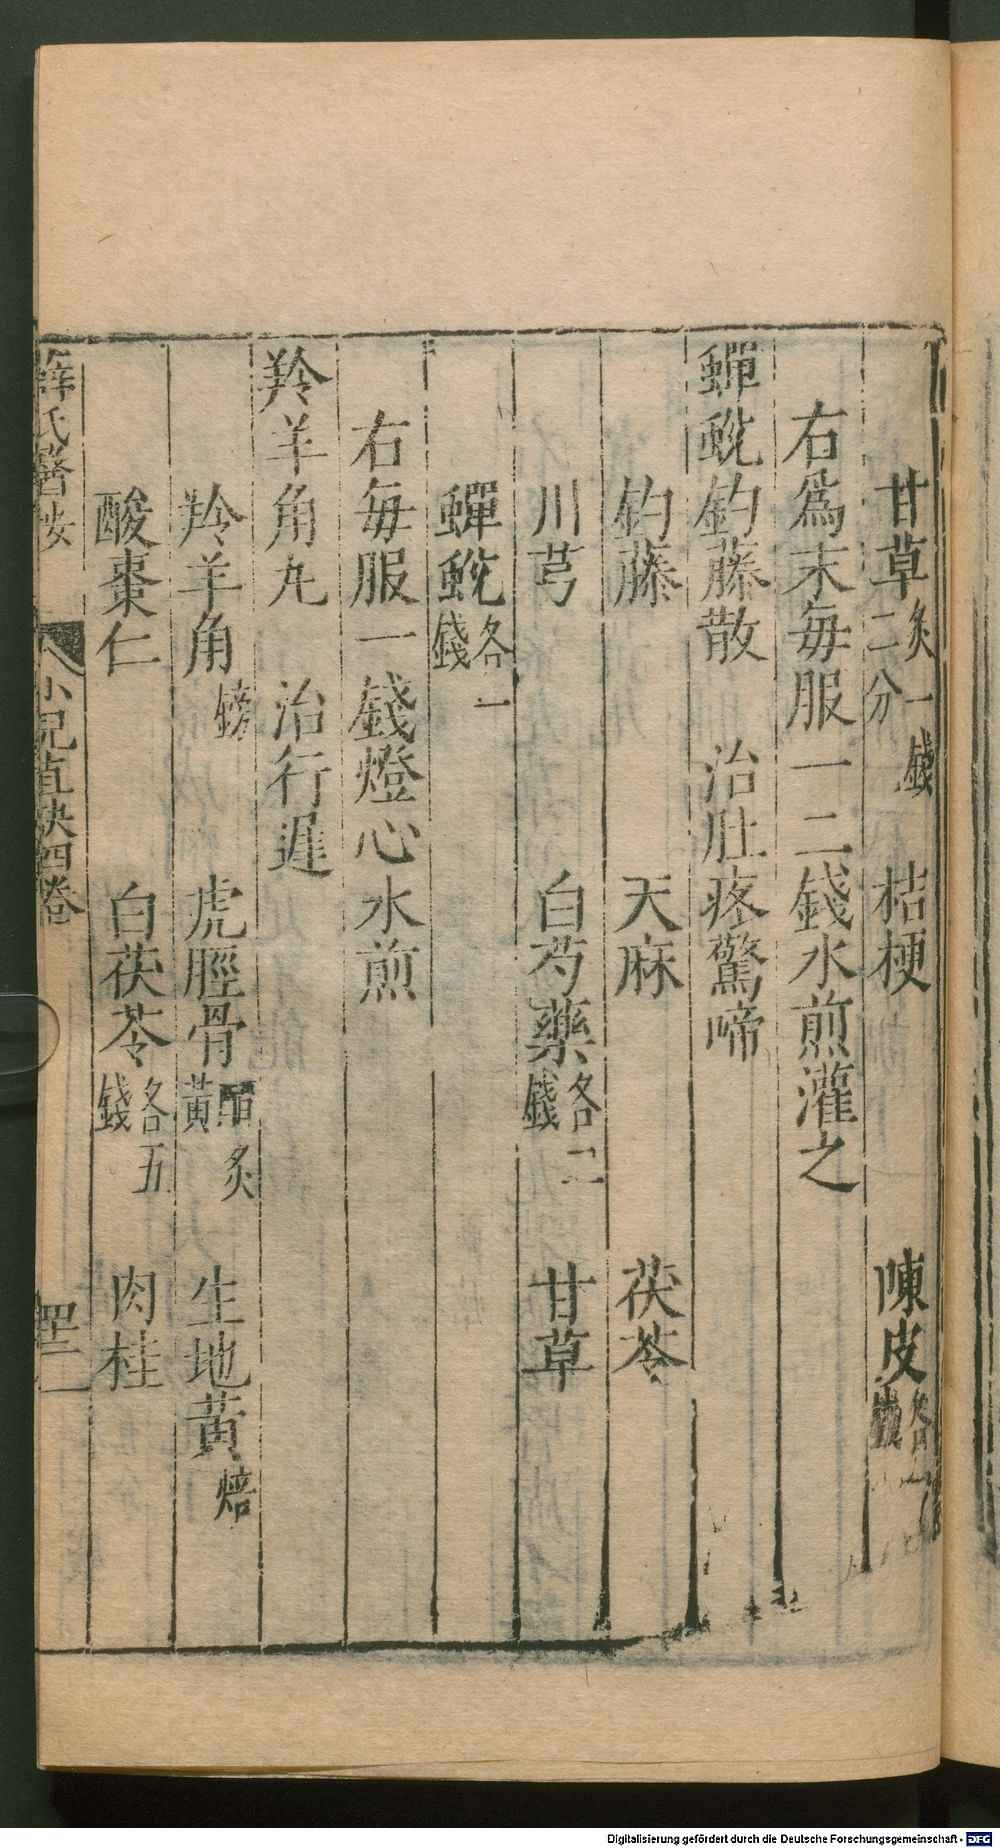 甘草炙一錢二分　桔梗　陳皮各一錢
右爲末每服一二錢水煎灌之
蟬蛻釣藤散　治肚疼驚啼
釣藤　天麻　茯苓
川芎　白芍藥各二錢　甘草
蟬蛻各一錢
右每服一錢燈心水煎
羚羊角丸　治行遲
羚羊角鎊　虎脛骨酥炙黃　生地黃焙
酸棗仁　白茯苓各五錢　肉桂
薛氏醫按　小兒直訣四卷
Digitalisierung gefördert durch die Deutsche Forschungsgemeinschaft - DFG